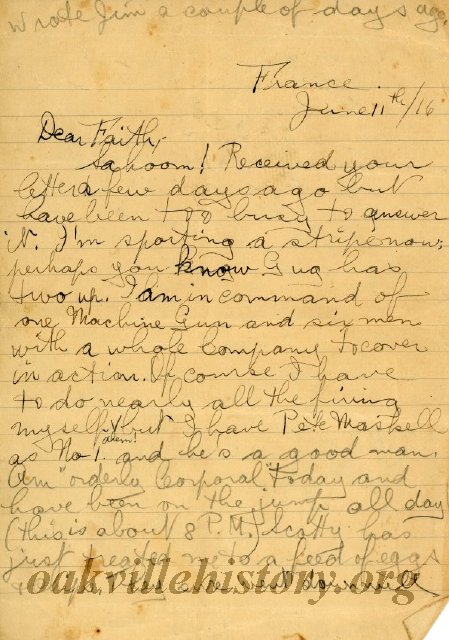 wrote Jim a couple of days ago.
France.
June 11th/16
Dear Faith,-
! Received your
letter a few days ago but
have been too busy to answer
it. I'm sporting a stripe now;
perhaps you know Gug has
two up. I am in command of
one Machine Gun and six men
with a whole Company to cover
in action. Of course I have
to do nearly all the firing
myself ahem! but I have Pete Maskell
as No 1. and he's a good man.
Am "orderly Corporal" today and
have been on the jump all day
(this is about 8 P.M.) Scotty has
just treated me to a feed of eggs
oakvillehistory.org